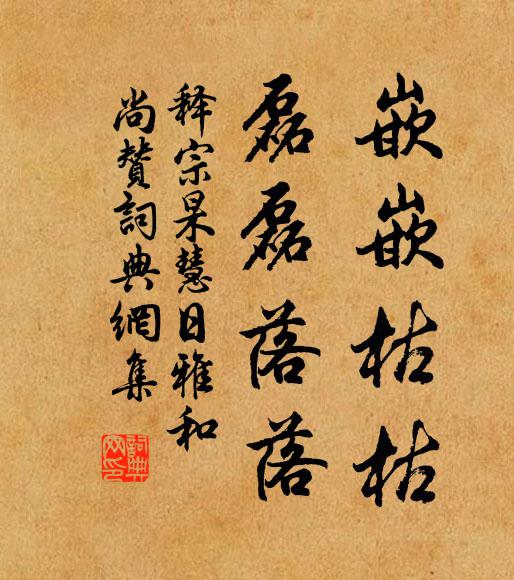 嵌嵌枯枯
磊磊落落
释宗杲慧日雅和
尚赞詞典網集
詞典网印